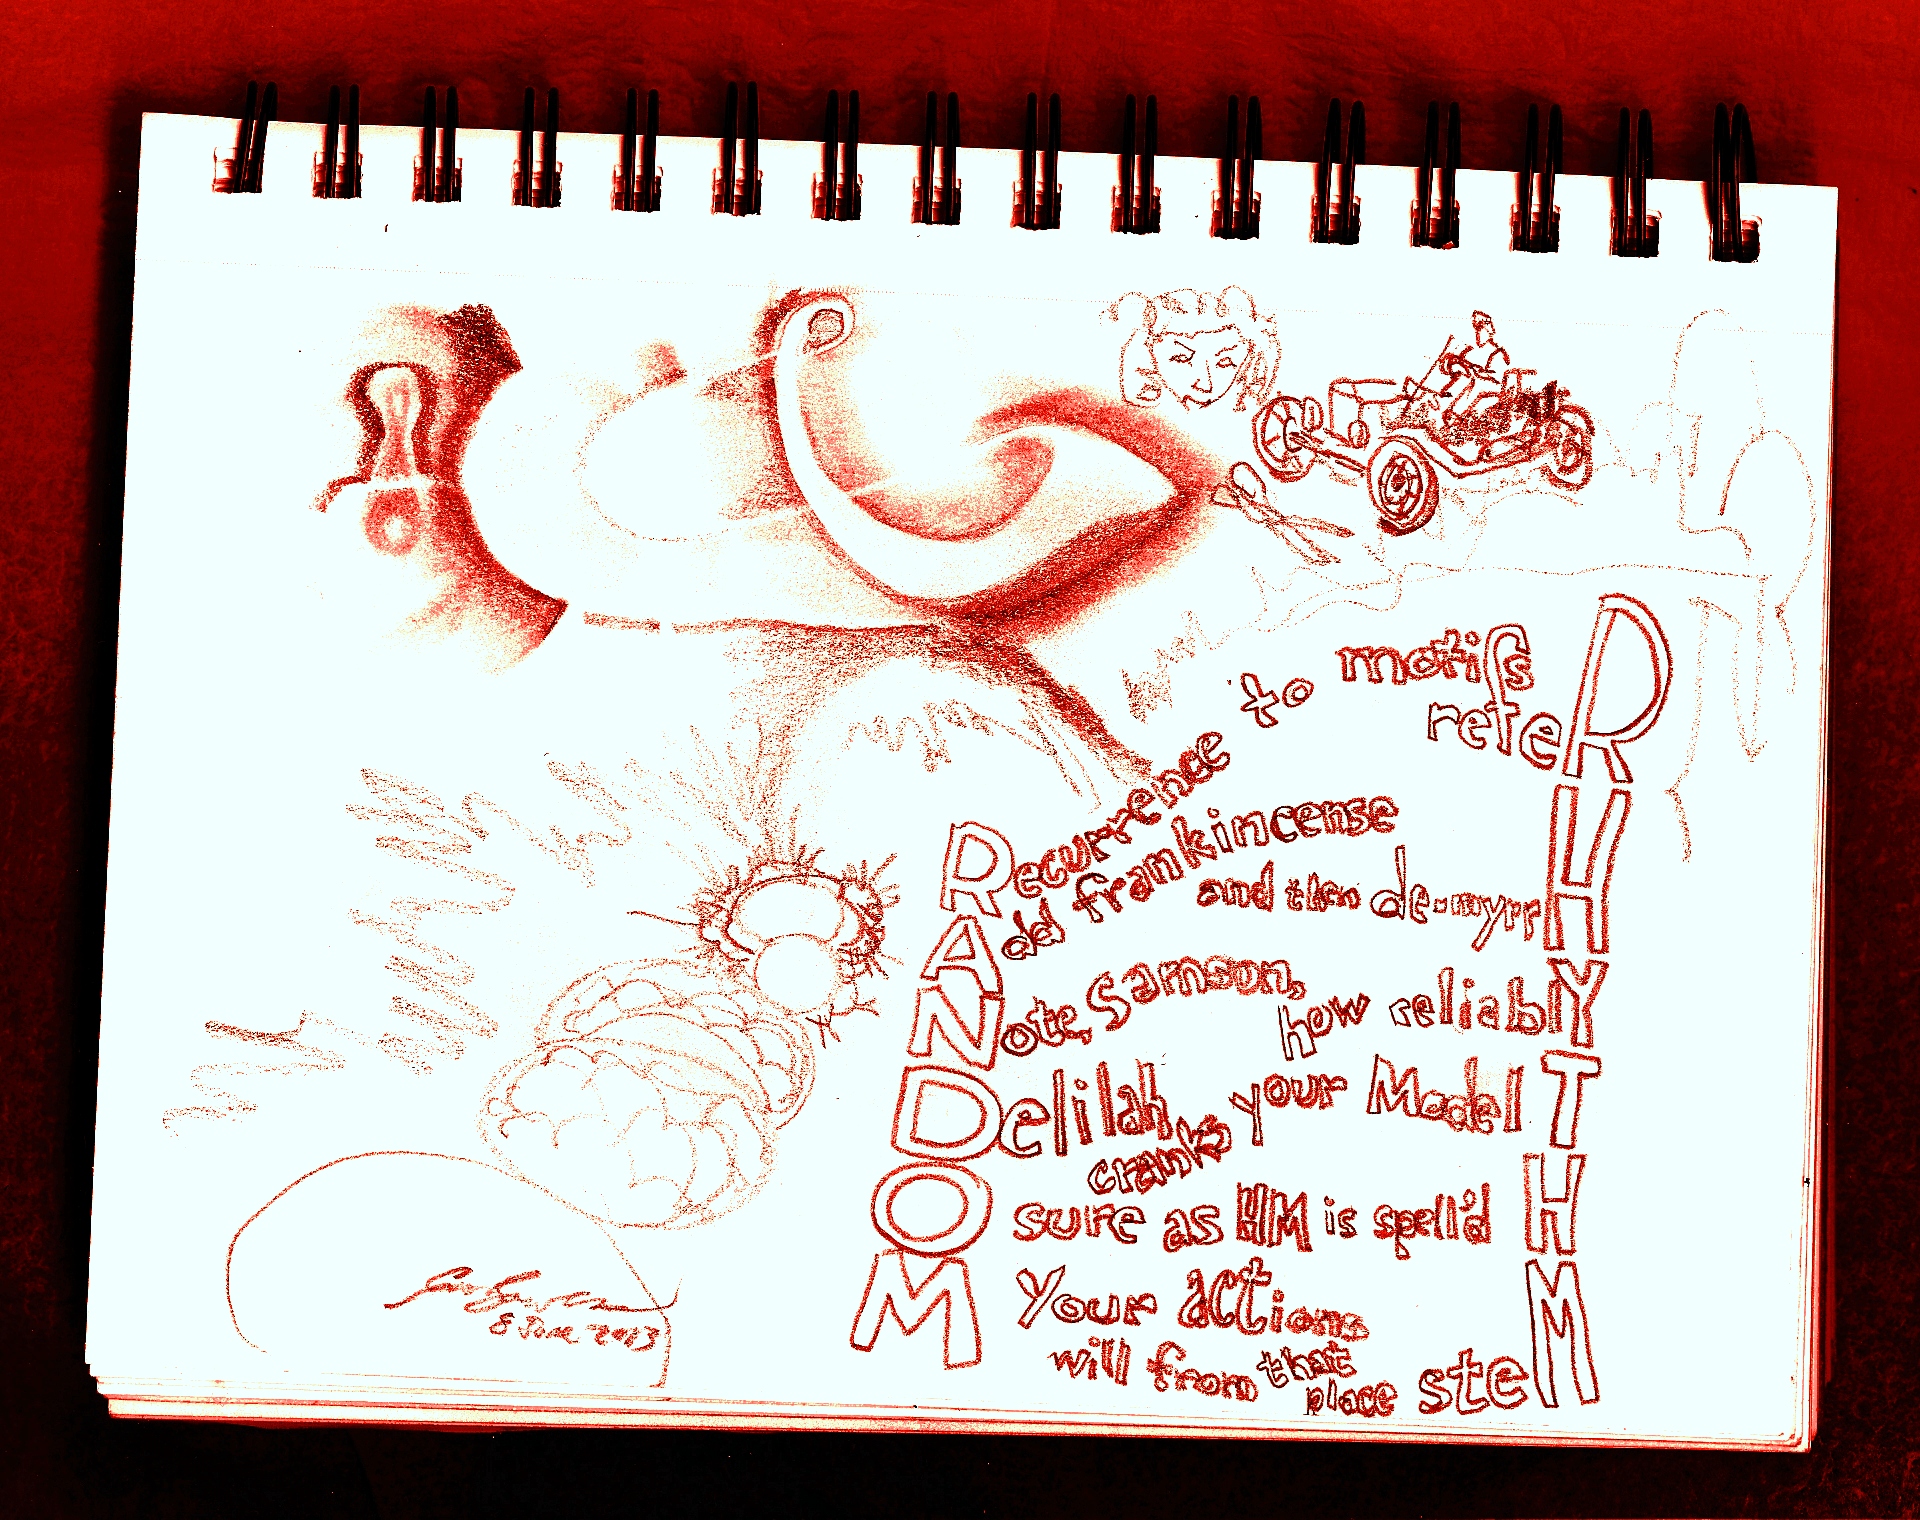 Recurrence to motifs
refeR
Add frankincense
and then de-myrrH
Note, Samson,
how reliablY
Delilah
cranks your Model T
Sure as HM is spell'd
Your actions
will from that
place steM
RANDOM
RHYTHM
8 June 2013